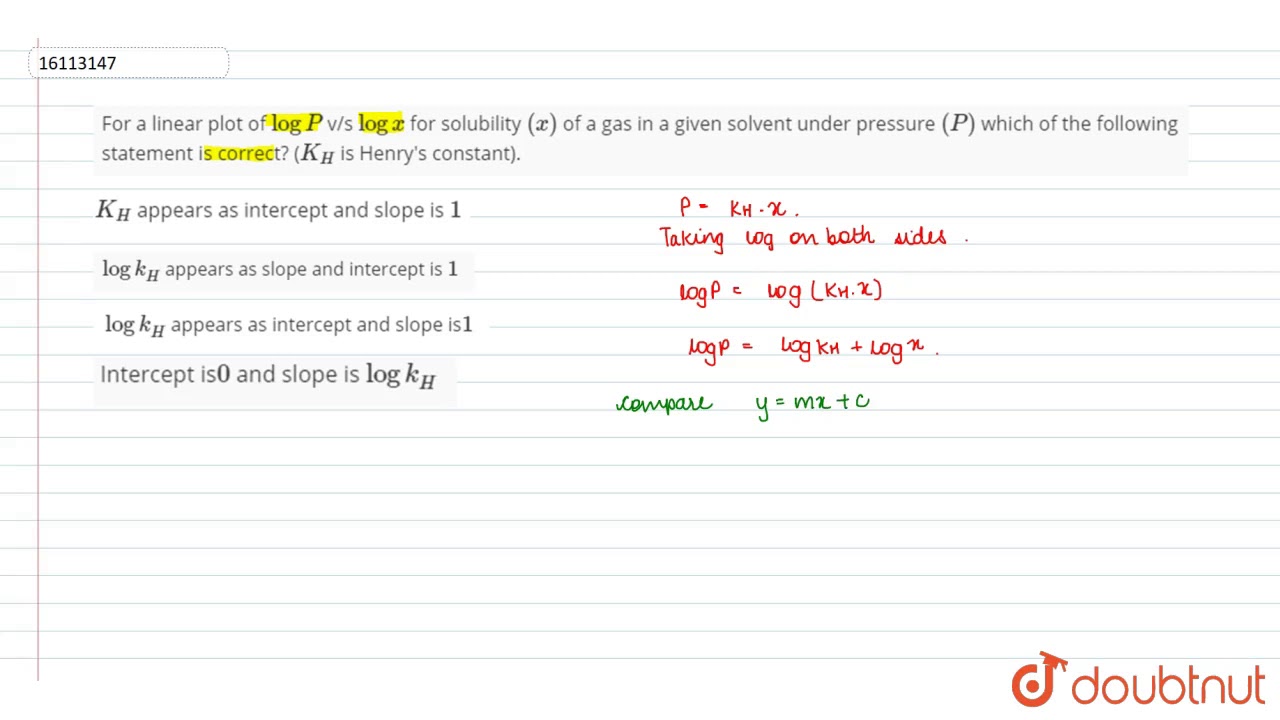 16113147
For a linear plot of log P v/s log x for solubility (x) of a gas in a given solvent under pressure (P) which of the following
statement is correct? (K_H is Henry's constant).
K_H appears as intercept and slope is 1
log k_H appears as slope and intercept is 1
log k_H appears as intercept and slope is1
Intercept is0 and slope is log k_H
P = KH . x .
Taking log on both sides .
log P = log (KH . x)
log P = log KH + log x .
compare y = mx + c
doubtnut